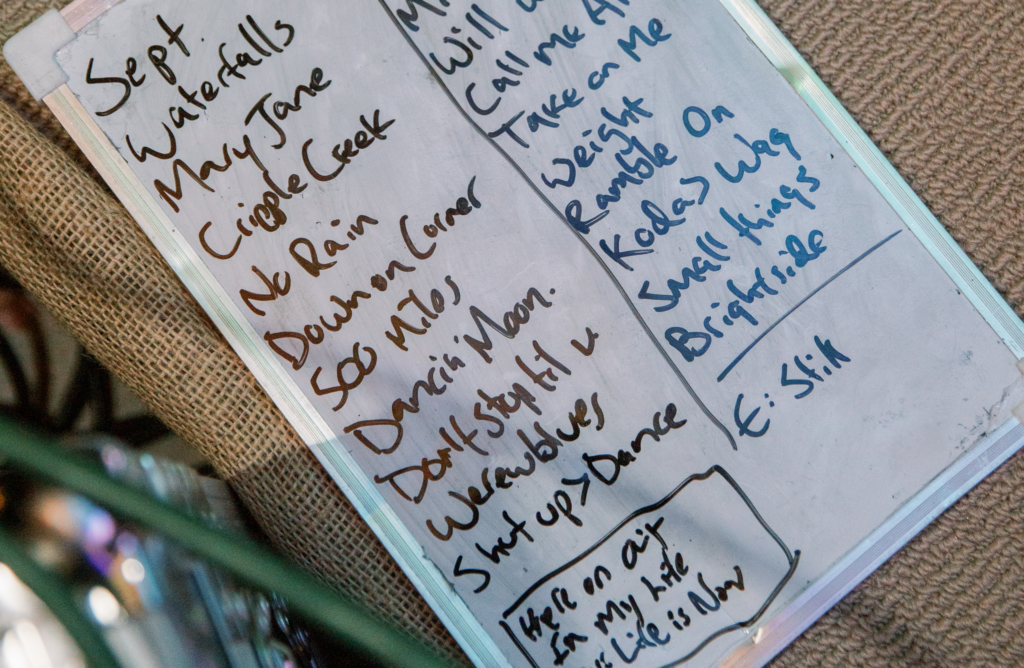 Sept.
Waterfalls
Mary Jane
Cripple Creek
No Rain
Down on Corner
500 Miles
Dancin' Moon.
Don't Stop til u
Werewolves
Shut up > Dance
In My Life
Life is Now
Will
Call me
Take on Me
Weight
Ramble On
Koda > Way
Small things
Brightside
E: Still